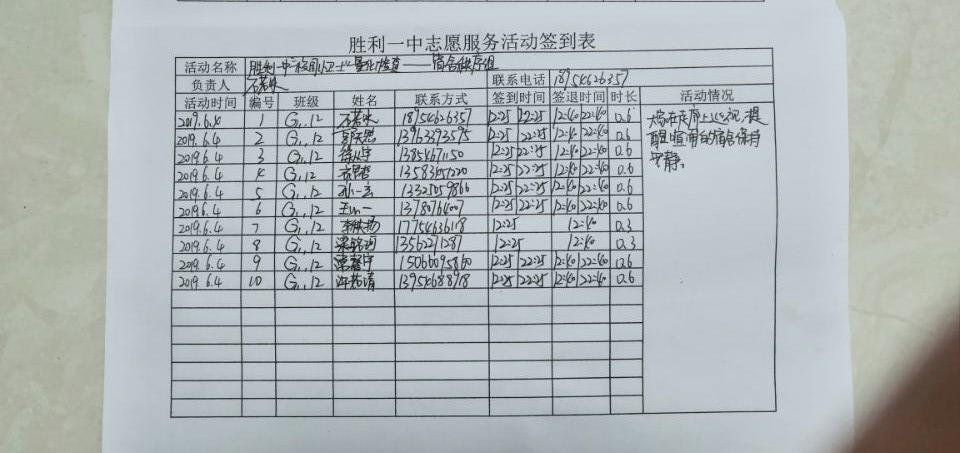 胜利一中志愿服务活动签到表
活动名称 胜利一中"校园小卫士"量化检查——宿舍秩序组
负责人 石若水 联系电话 18954626357
活动时间 编号 班级 姓名 联系方式 签到时间 签退时间 时长 活动情况
2019.6.4 1 G1.12 石若水 18954626357 12:25 22:25 12:40 22:40 0.6
2019.6.4 2 G1.12 13963393595 12:25 22:25 12:40 22:40 0.6
2019.6.4 3 G1.12 13854671150 12:25 22:25 12:40 22:40 0.6
2019.6.4 4 G1.12 12:25 22:25 12:40 22:40 0.6
2019.6.4 5 G1.12 孙一 13325059866 12:25 22:25 12:40 22:40 0.6
2019.6.4 6 G1.12 王 一 13780764007 12:25 22:25 12:40 22:40 0.6
2019.6.4 7 G1.12 17754636118 12:25 12:40 0.3
2019.6.4 8 G1.12 12:25 12:40 0.3
2019.6.4 9 G1.12 12:25 22:25 12:40 22:40 0.6
2019.6.4 10 G1.12 13954688918 12:25 22:25 12:40 22:40 0.6
在走廊上巡视,提
醒喧闹的宿舍保持
安静。